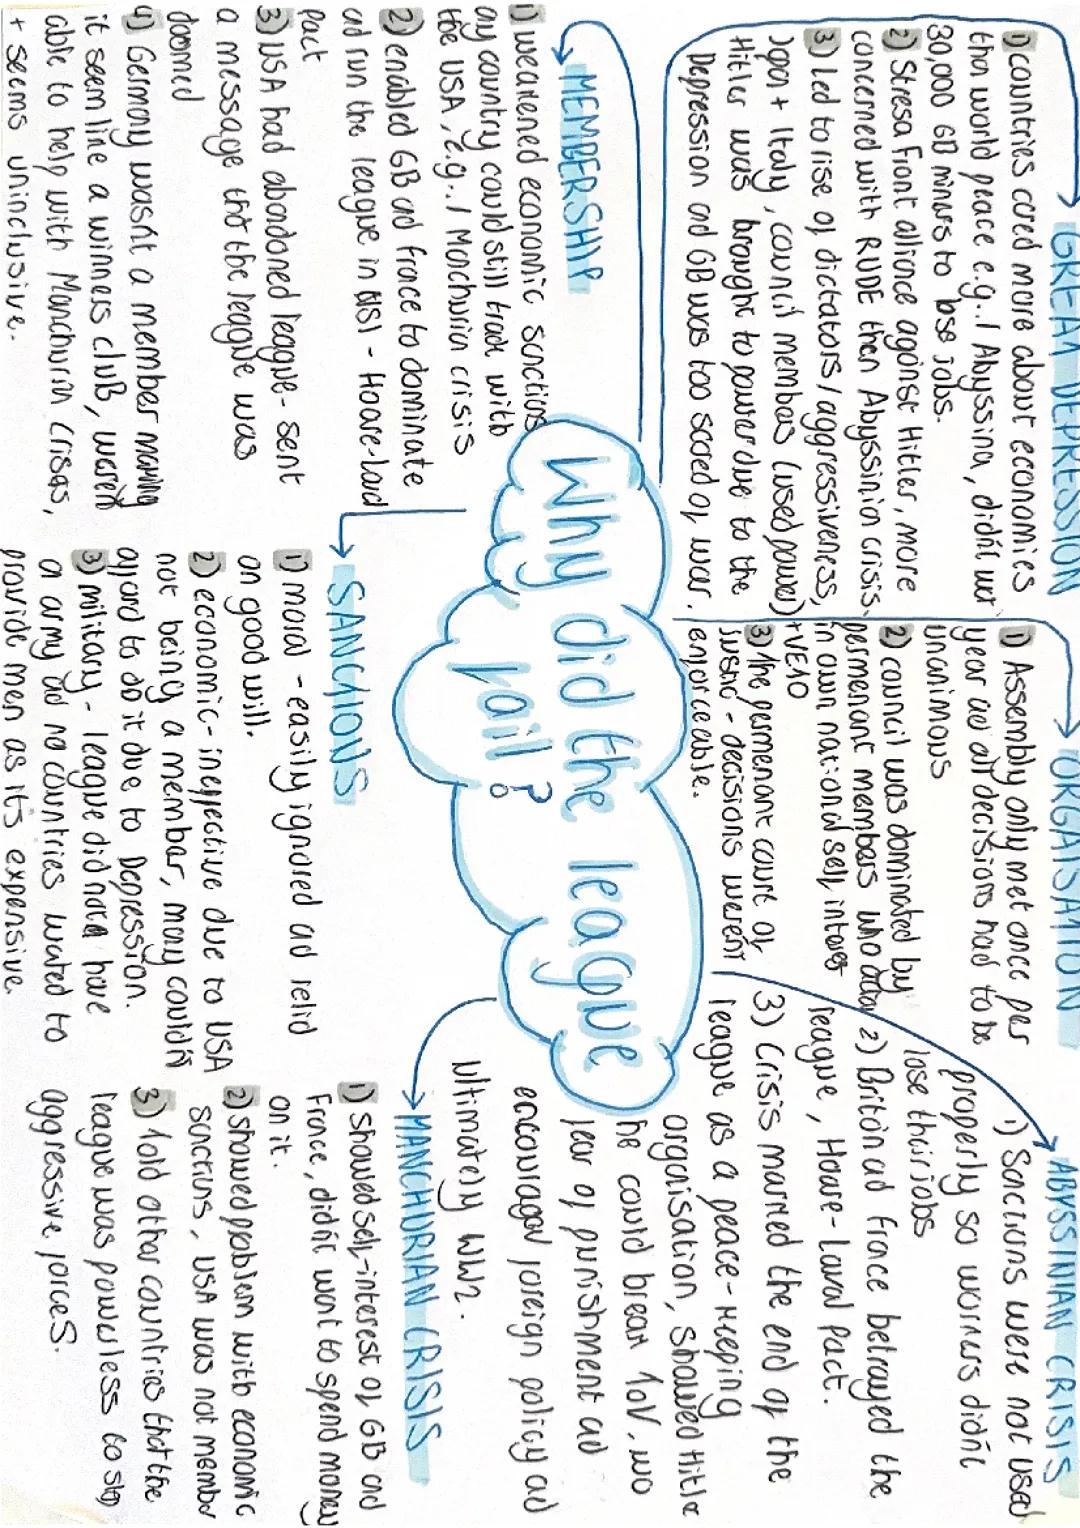 Why did the league
fail?
GREAT DEPRESSION
1) countries cared more about economies
than world peace e.g./ Abyssina, didn't wnt
30,000 GB miners to lose jobs.
2) Stresa Front alliance against Hitler, more
concerned with RUDE then Abyssinia crisis.
3) Led to rise of dictators/aggressiveness,
Japan + Italy, council members (used power)
Hitler was brought to power due to the
Depression and GB was too scared of war.
ORGAISATION
1) Assembly only met once per
year ad all decisions had to be
unanimous
2) council was dominated by
permenant members who
in own national self interes
+VETO
3) the permenant court of
justic - decisions werent
enforceable.
ABYSSINIAN CRISIS
1) Sanctions were not used
properly so workers didn't
lose their jobs
2) Britain ad France betrayed the
league, Hoare-Laval Pact.
3) Crisis marked the end of the
league as a peace-keeping
organisation, showed Hitler
he could break ToV, no
fear of punishment ad
encouragd foreign policy ad
ultimately WW2.
MEMBERSHIP
1) weakened economic sanctions
any country could still trade with
the USA, e.g./ Manchuria crisis
2) enabled GB and France to dominate
ad run the league in - Hoare-Laval
pact
3) USA had abandoned league- sent
a message that the league was
doomed
4) Germany wasn't a member making
it seem like a winners club, weren't
able to help with Manchurian Crises,
+ seems uninclusive.
SANCTIONS
1) moral - easily ignored ad relid
on good will.
2) economic - ineffective due to USA
not being a member, many couldn't
afford to do it due to Depression.
3) military - league did not have
a army ad no countries wated to
provide men as its expensive.
MANCHURIAN CRISIS
1) showed self-interest of GB and
France, didn't want to spend money
on it.
2) showed problem with economic
sanctions, USA was not member
3) Told other countries that the
league was powerless to stop
aggressive forces.